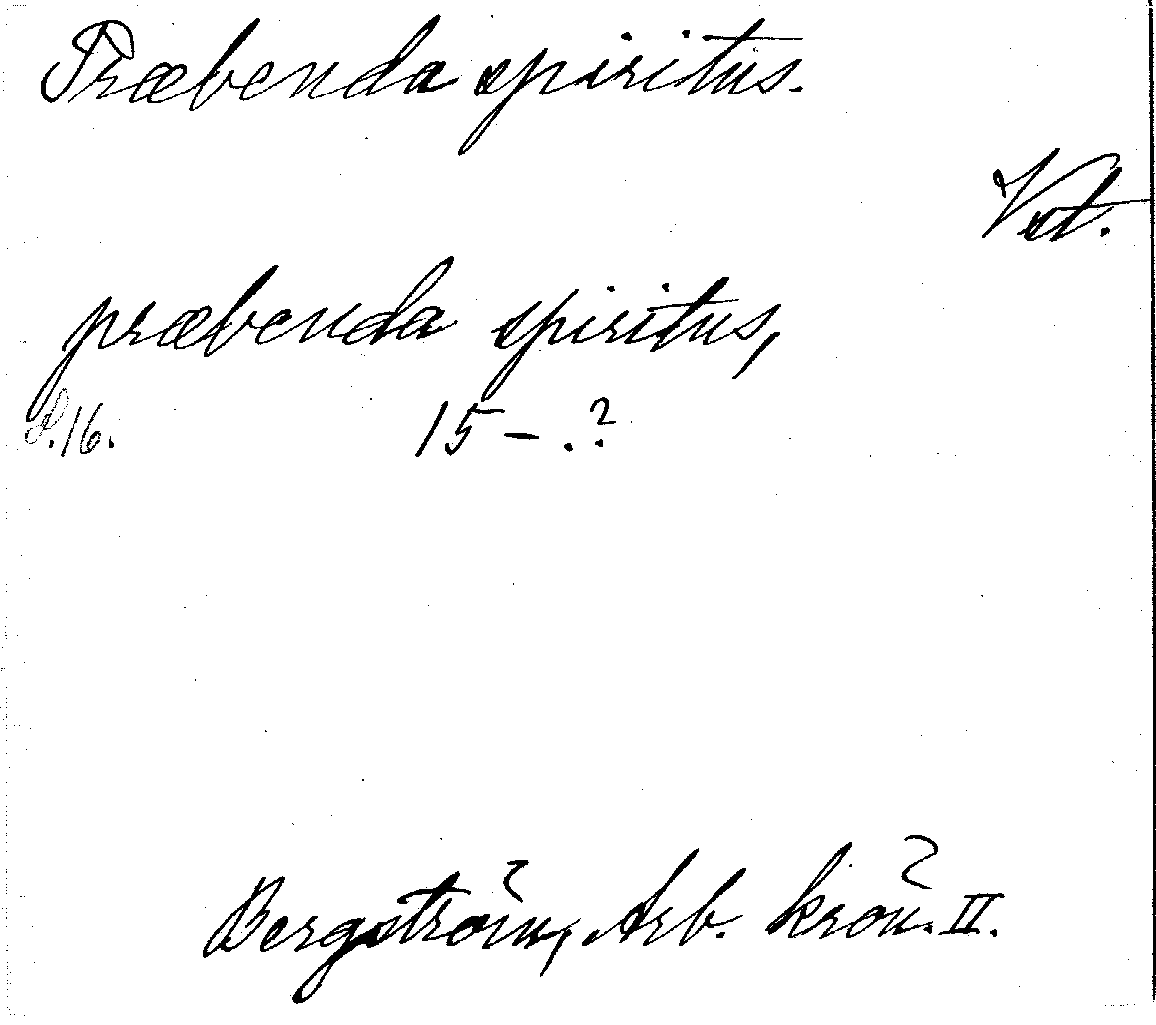 Præbenda spiritus.
Vst.
præbenda spiritus,
S. 16. 15–.?
Bergström, Arb. krön. II.